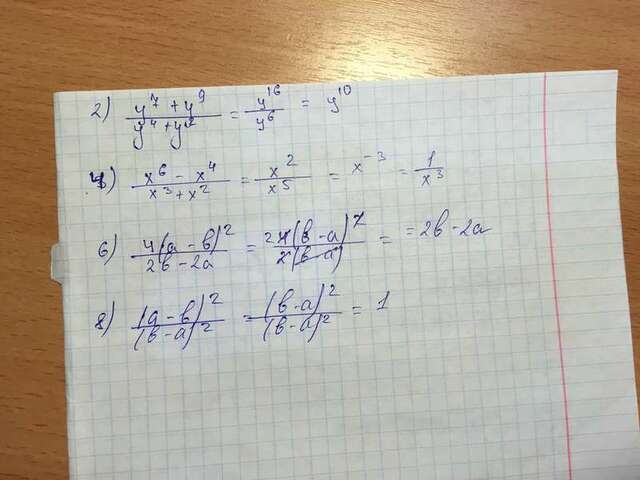 2) (y^7 + y^9)/(y^4 + y^2) = y^16/y^6 = y^10
4) (x^6 - x^4)/(x^3 + x^2) = x^2/x^5 = x^-3 = 1/x^3
6) 4(a - b)^2/(2b - 2a) = 2 4(b - a)^2/2(b - a) = = 2b - 2a
8) (a - b)^2/(b - a)^2 = (b - a)^2/(b - a)^2 = 1